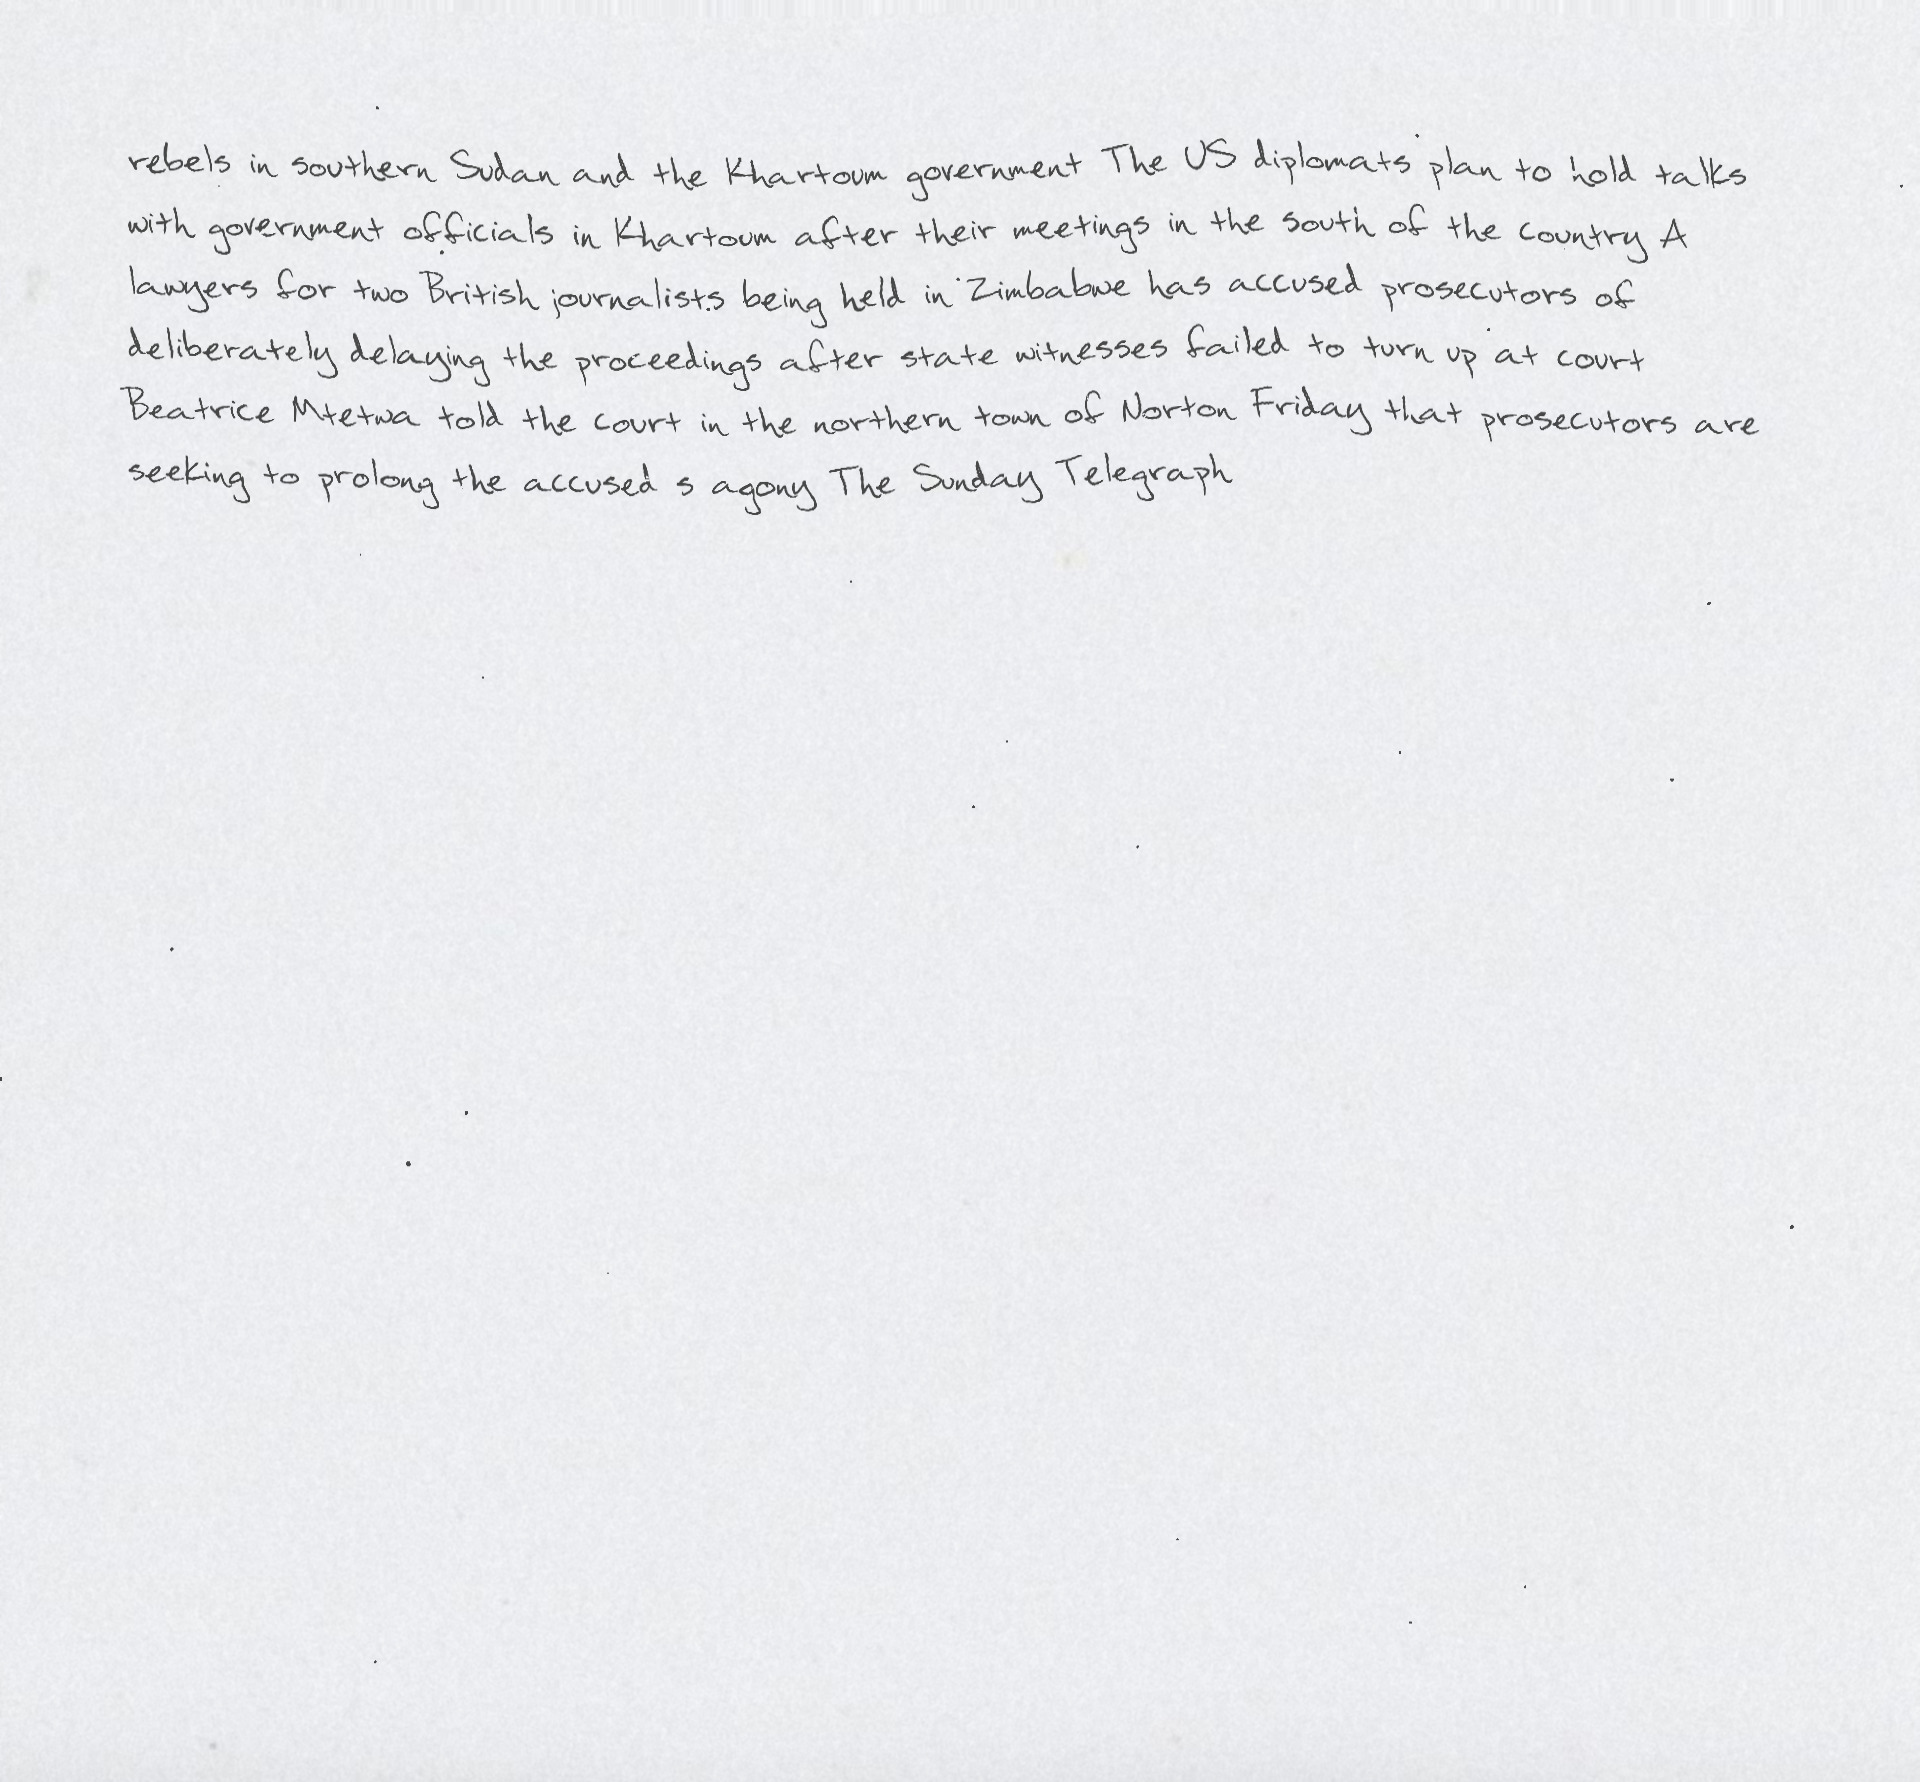 rebels in southern Sudan and the Khartoum government The US diplomats plan to hold talks
with government officials in Khartoum after their meetings in the south of the country A
lawyers for two British journalists being held in Zimbabwe has accused prosecutors of
deliberately delaying the proceedings after state witnesses failed to turn up at court
Beatrice Mtetwa told the court in the northern town of Norton Friday that prosecutors are
seeking to prolong the accused s agony The Sunday Telegraph